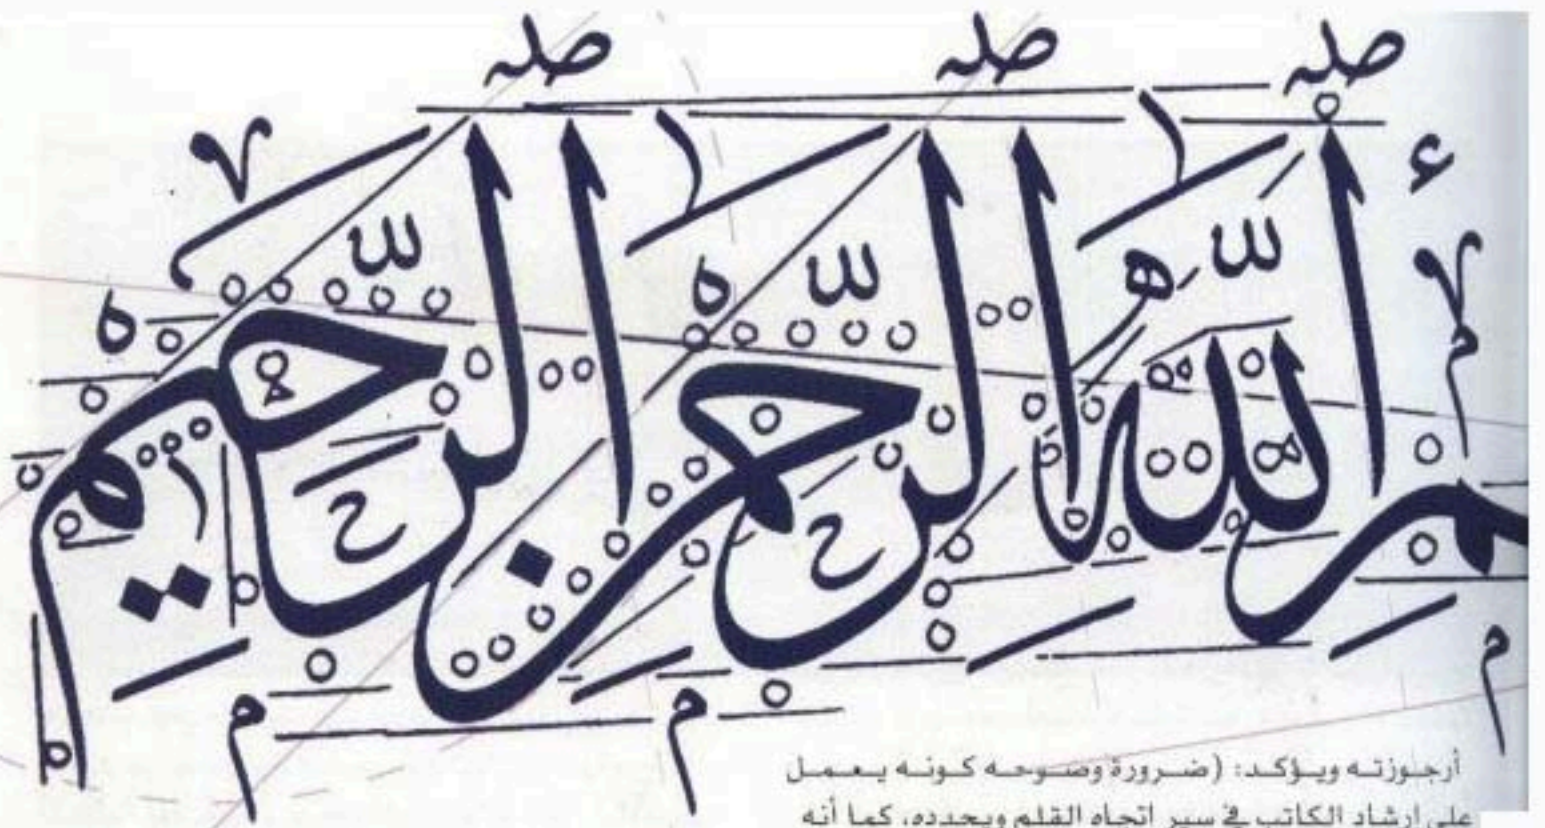 ـم الله الرحمن الرحيم
أرجوزته ويؤكد: (ضرورة وضوحه كونه يعمل
على إرشاد الكاتب في سير اتجاه القلم ويحدده، كما أنه